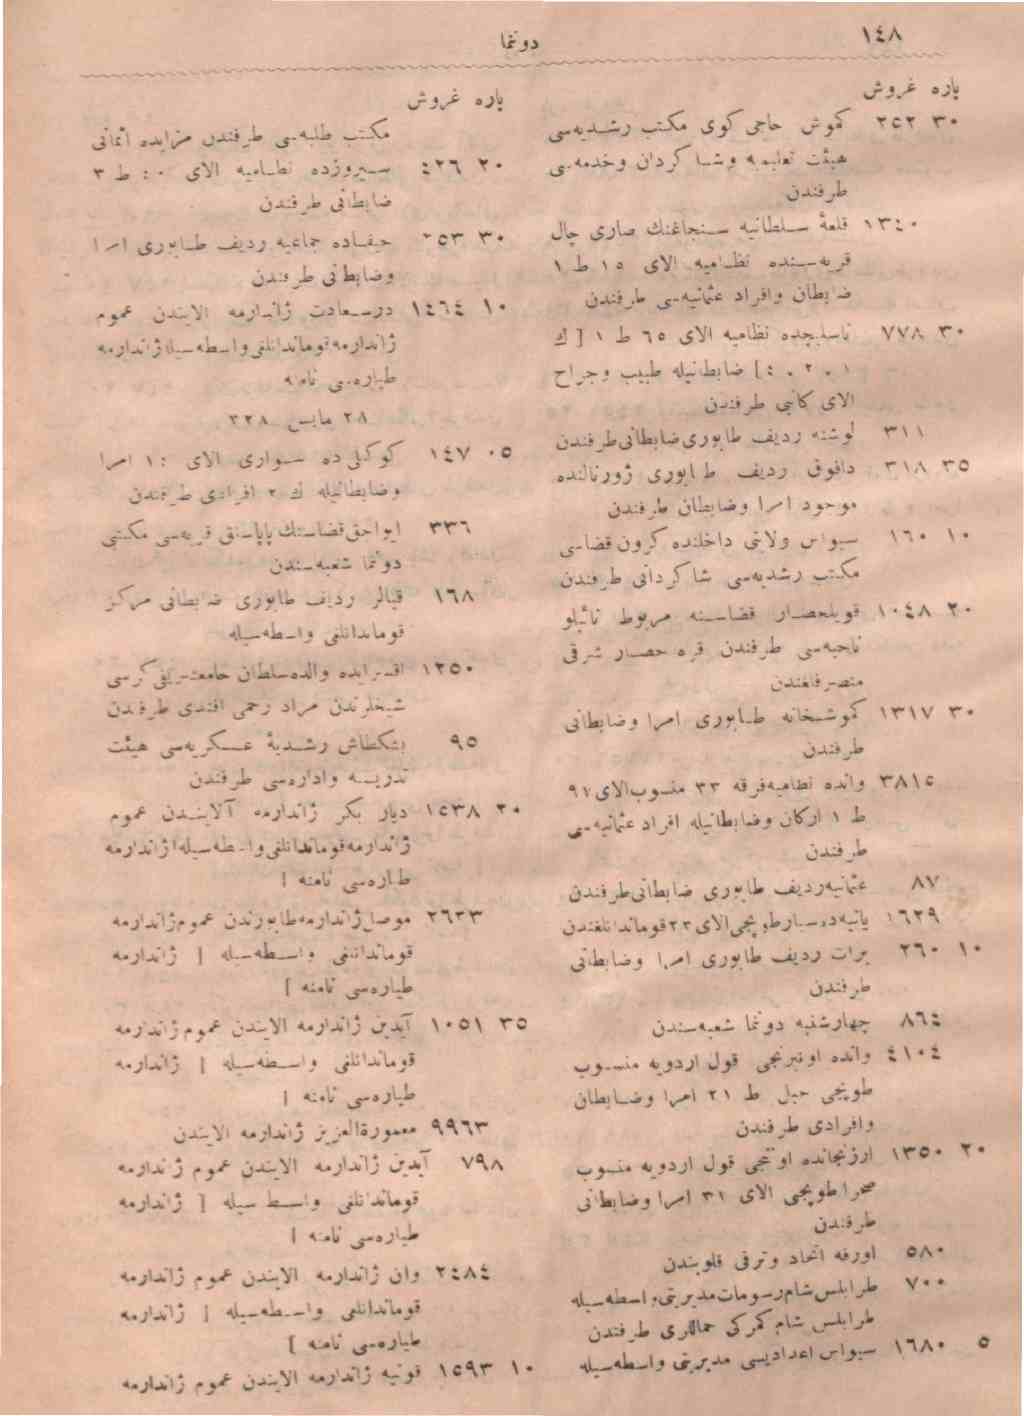 ١٤٨
دونما
پاره غروش
٣٠ ٢٥٢ كموش حاجی كوی مكتب رشدیه‌سی
هیئت تعلیمیه وشاكردان وخدمه‌سی
طرفندن
١٣٤٠ قلعهٔ سلطانیه سنجاغنك صاری چال
قریه‌سنده نظامیه الای ١٥ ط ١
ضابطان وافراد عثمانیه‌سی طرفندن
٣٠ ٧٧٨ ناسلیجده نظامیه الای ٦٥ ط ١ [ ك
١ . ٢ . ٤ ] ضابطانیله طبیب وجراح
الای كاتبی طرفندن
٣١١ لوشنه ردیف طابوری ضابطانی طرفندن
٣٥ ٣١٨ داقوق ردیف طابوری ژورنالنده
موجود امرا وضابطان طرفندن
١٠ ١٦٠ سیواس ولایتی داخلنده كرون قضاسی
مكتب رشدیه‌سی شاكردانی طرفندن
٢٠ ١٠٤٨ قویلحصار قضاسنه مربوط نائبلو
ناحیه‌سی طرفندن قره حصار شرقی
متصرفلغندن
٣٠ ١٣١٧ كموشخانه طابوری امرا وضابطانی
طرفندن
٣٨١٥ وانده نظامیه فرقه ٣٣ منسوب الای ٩٧
ط ١ اركان وضابطانیله افراد عثمانیه‌سی
طرفندن
٨٧ عثمانیه ردیف طابوری ضابطانی طرفندن
١٦٢٩ یانیه‌ده سیار طوپجی الای ٢٣ قوماندانلغندن
١٠ ٢٦٠ برات ردیف طابوری امرا وضابطانی
طرفندن
٨٦٤ چهارشنبه دونما شعبه‌سندن
٤١٠٤ وانده اونبرنجی قول اردویه منسوب
طوپجی جبل ط ٢١ امرا وضابطان
وافرادی طرفندن
٢٠ ١٣٥٠ ارزنجانده اونجی قول اردویه منسوب
صحرا طوپجی الای ٣١ امرا وضابطانی
طرفندن
٥٨٠ اورفه اتحاد وترقی قلوبندن
٧٠٠ طرابلس شام رسومات مدیریتی واسطه‌سیله
طرابلس شام كمركی حماللری طرفندن
٥ ١٦٨٠ سیواس اعدادیسی مدیریتی واسطه‌سیله
پاره غروش
مكتب طلبه‌سی طرفندن مزایده اثمانی
٢٠ ٤٢٦ سیروزده نظامیه الای ٤٠ ط ٣
ضابطانی طرفندن
٣٠ ٢٥٣ حیفاده جماعیه ردیف طابوری امرا
وضابطانی طرفندن
١٠ ١٤٦٤ درسعادت ژاندارمه الایندن عموم
ژاندارمه قوماندانلغی واسطه‌سیله [ ژاندارمه
طیاره‌سی نامنه
٢٨ مایس ٣٢٨
٠٥ ١٤٧ كوكلی ده سواری الای ١٤ امرا
وضابطانیله ك ٢ افرادی طرفندن
٣٣٦ ایواجق قضاسنك پاپاسنق قریه‌سی مكتبی
دونما شعبه‌سندن
١٦٨ قیالر ردیف طابوری ضابطانی مركز
قوماندانلغی واسطه‌سیله
١٢٥٠ اقسرایده والده سلطان جامع شریفی كرسی
شیخلرندن مراد رحمی افندی طرفندن
٩٥ بشكطاش رشدیهٔ عسكریه‌سی هیئت
تدریسیه واداره‌سی طرفندن
٢٠ ١٥٣٨ دیار بكر ژاندارمه آلایندن عموم
ژاندارمه قوماندانلغی واسطه‌سیله [ ژاندارمه
طیاره‌سی نامنه ]
٢٦٣٣ موصل ژاندارمه طابورندن عموم ژاندارمه
قوماندانلغی واسطه‌سیله [ ژاندارمه
طیاره‌سی نامنه ]
٣٥ ١٠٥١ آیدین ژاندارمه الایندن عموم ژاندارمه
قوماندانلغی واسطه‌سیله [ ژاندارمه
طیاره‌سی نامنه ]
٩٩٦٣ معمورة العزیز ژاندارمه الایندن
٧٩٨ آیدین ژاندارمه الایندن عموم ژاندارمه
قوماندانلغی واسطه‌سیله [ ژاندارمه
طیاره‌سی نامنه ]
٢٤٨٤ وان ژاندارمه الایندن عموم ژاندارمه
قوماندانلغی واسطه‌سیله [ ژاندارمه
طیاره‌سی نامنه ]
١٠ ١٥٩٣ قونیه ژاندارمه الایندن عموم ژاندارمه